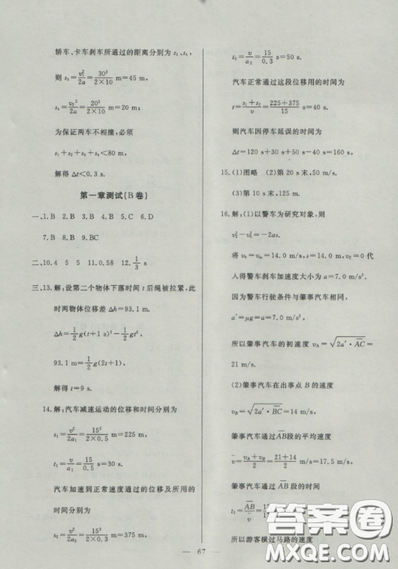 轿车、卡车刹车所通过的距离分别为s₁、s₂,
则s₁=v₁²/2a=30²/(2×10) m=45 m,
s₂=v₂²/2a=20²/(2×10) m=20 m,
为保证两车不相撞,必须
s₁+s₂+s₃+s₄<80 m,
解得Δt<0.3 s.
第一章测试(B卷)
一、1. B 2. B 3. B 4. B 5. C 6. D
7. B 8. D 9. BC
二、10. 4 5 5 11. 0.58 12. 1/3 s
三、13. 解:设第二个物体下落时间t后绳被拉紧,此
时两物体位移差Δh=93.1 m,
Δh=½g(t+1 s)²-½gt²,
93.1 m=½g(2t+1),
解得t=9 s.
14. 解:汽车减速运动的位移和时间分别为
s₁=v²/2a₁=15²/(2×0.5) m=225 m,
t₁=v/a₁=15/0.5 s=30 s.
汽车加速到正常速度通过的位移及所用的
时间分别为
s₂=v²/2a₂=15²/(2×0.3) m=375 m,
t₂=v/a₂=15/0.3 s=50 s.
汽车正常通过这段位移用的时间为
t=(s₁+s₂)/v=(225+375)/15 s=40 s.
则汽车因停车延误的时间为
Δt=120 s+30 s+50 s-40 s=160 s.
15. (1)图略 (2)第20 s末,50 m/s.
(3)第10 s末,125 m.
16. 解:(1)以警车为研究对象,则
将v₀=14.0 m/s,s=14.0 m,vₜ=0代
入得警车刹车加速度大小为a=7.0 m/s².
因为警车行驶条件与肇事汽车相同,
a′=μg=a=7.0 m/s².
所以肇事汽车的初速度v_A=√(2a′·AC)=
21 m/s.
(2)肇事汽车在出事点B的速度
v_B=√(2a′·BC)=14 m/s,
肇事汽车通过AB段的平均速度
v=(v_A+v_B)/2=(21+14)/2 m/s=17.5 m/s.
肇事汽车通过AB段的时间
所以游客横过马路的速度
67
答案圈
MXQE.COM